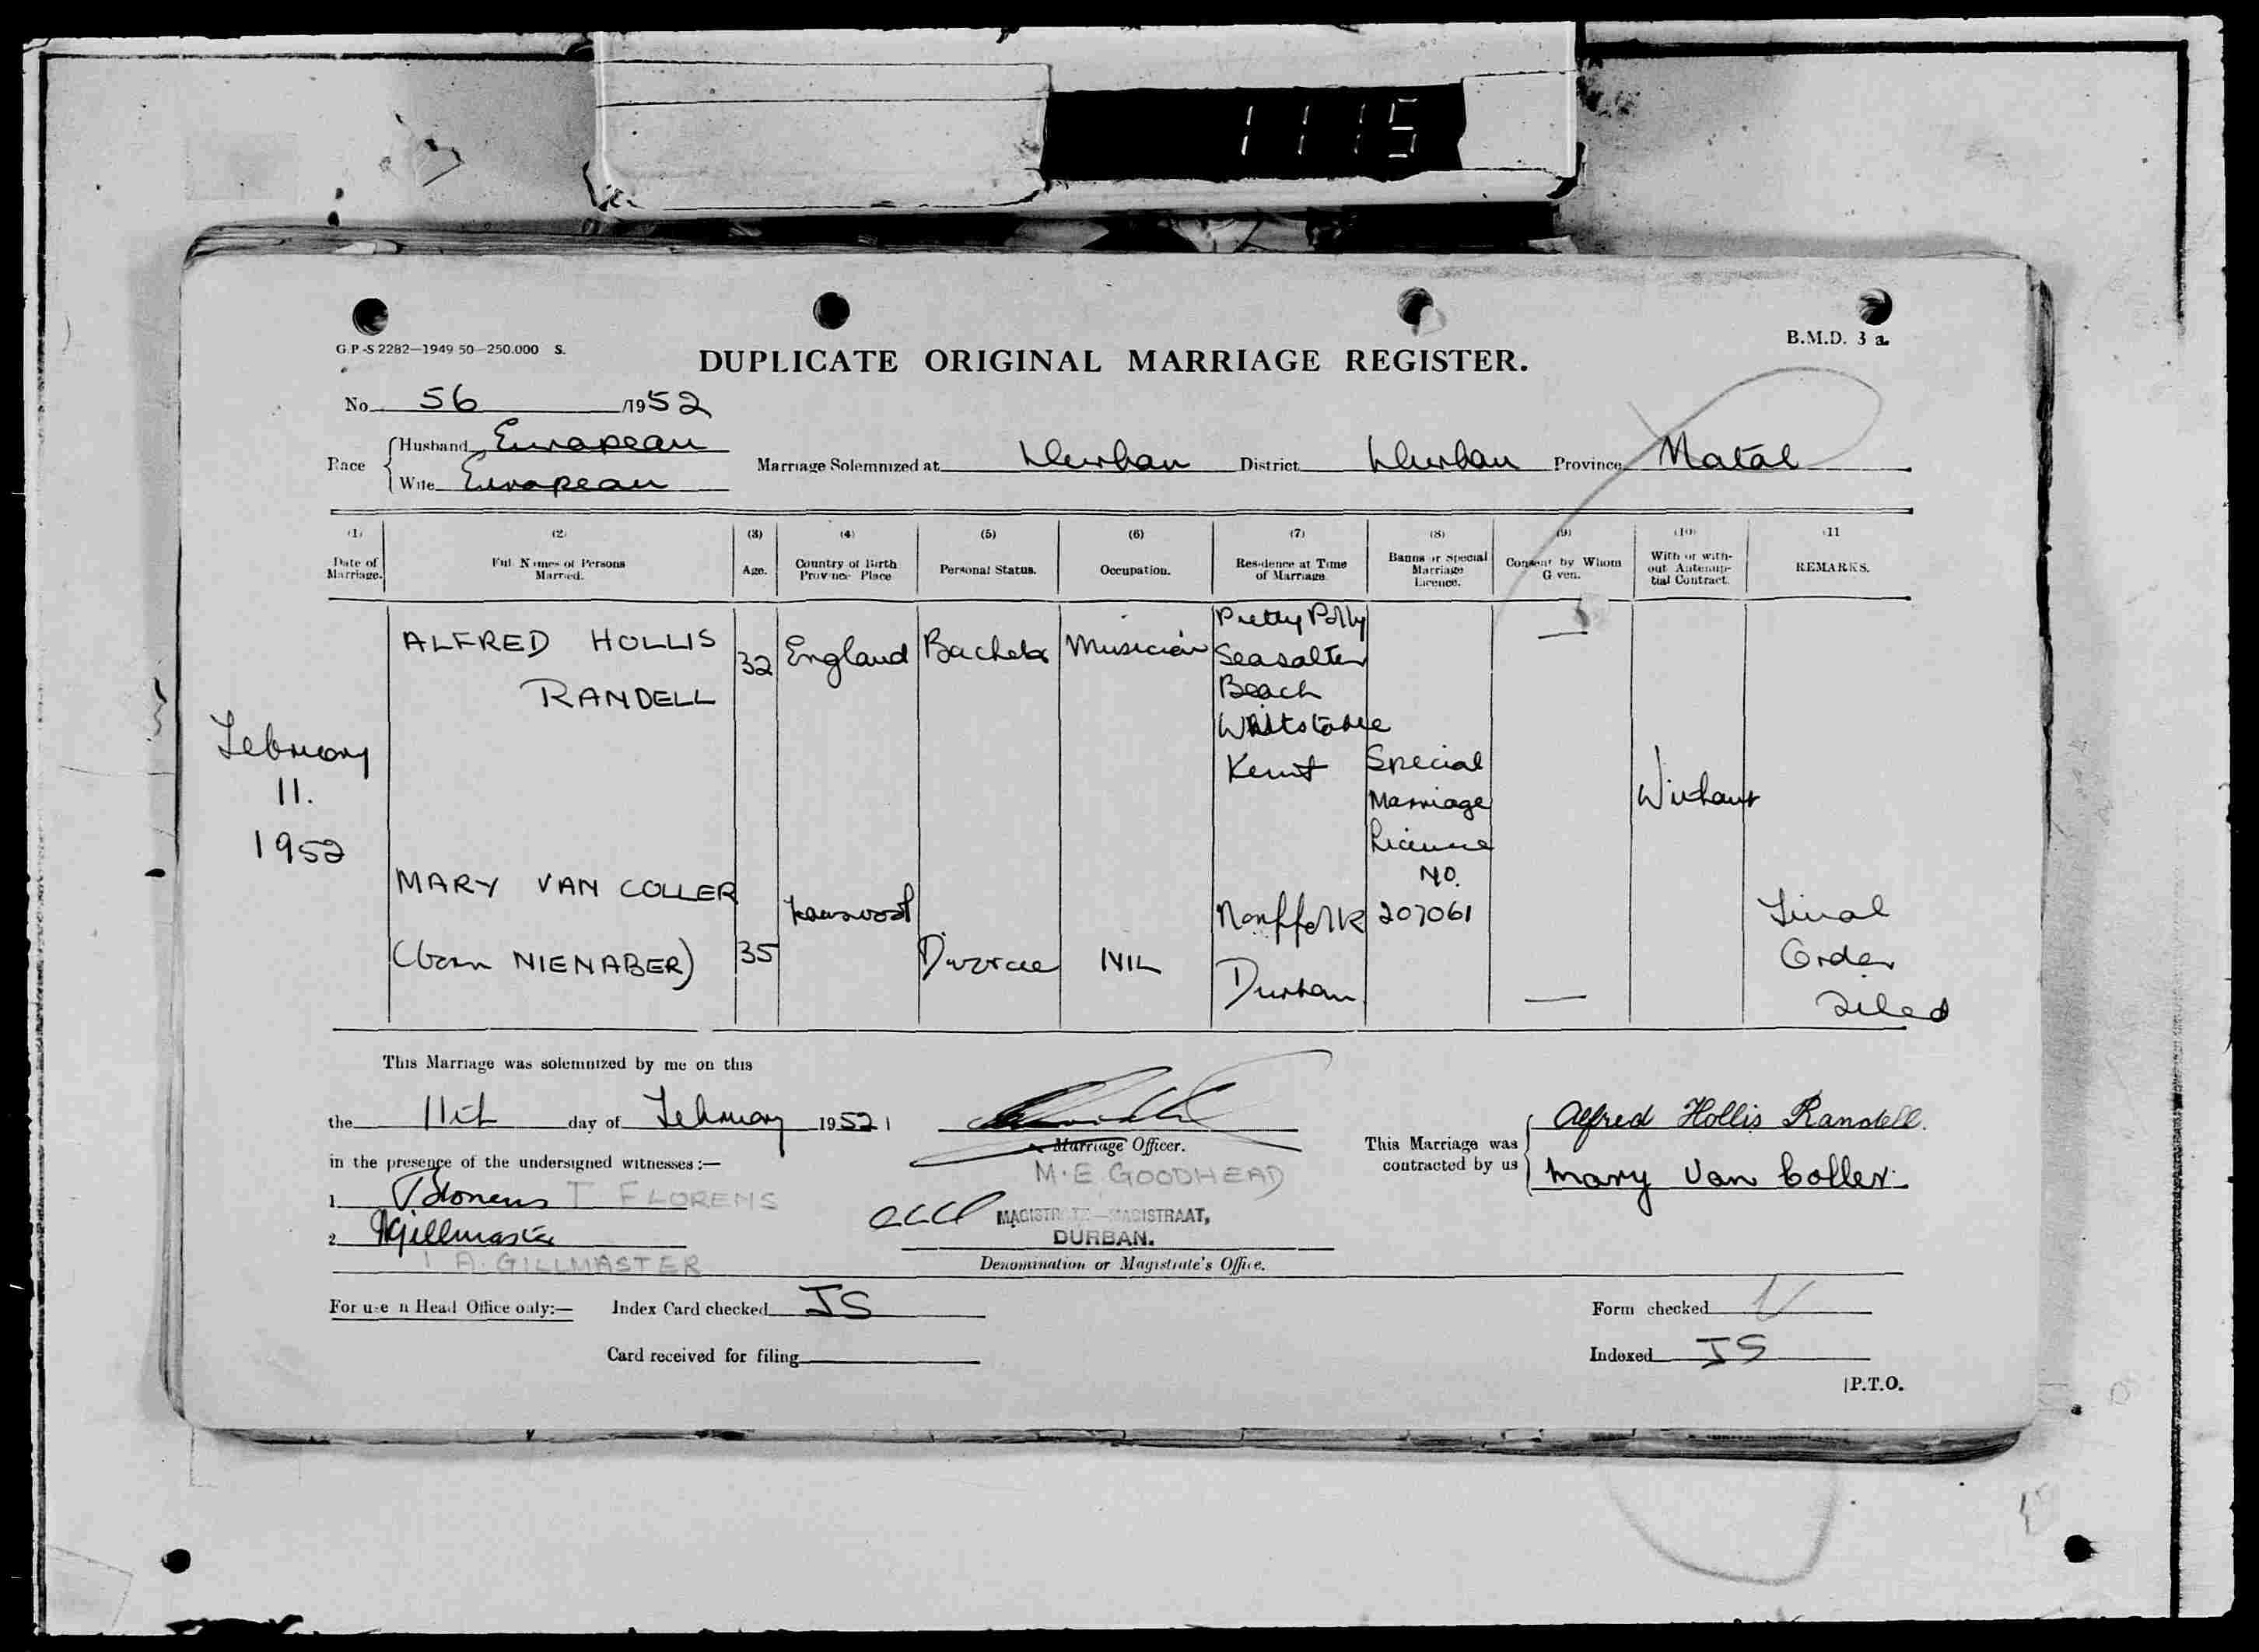 1115
G.P.-S 2282—1949 50—250.000 S.
B.M.D. 3 a.
DUPLICATE ORIGINAL MARRIAGE REGISTER.
No. 56 /1952
Race
Husband European
Wife European
Marriage Solemnized at Durban District Durban Province Natal
(1) (2) (3) (4) (5) (6) (7) (8) (9) (10) (11
Date of Marriage.
Full Names of Persons Married.
Age.
Country of Birth Province Place
Personal Status.
Occupation.
Residence at Time of Marriage.
Banns or Special Marriage Licence.
Consent by Whom Given.
With or without Antenuptial Contract.
REMARKS.
February
11.
1952
ALFRED HOLLIS
RANDELL
32
England
Bachelor
Musician
Pretty Polly
Seasalter
Beach
Whitstable
Kent
Special
Marriage
Licence
NO.
207061
Without
MARY VAN COLLER
(born NIENABER)
35
Divorcee
NIL
Norffolk
Durban
Final
Order
Filed
This Marriage was solemnized by me on this
the 11th day of February 1952
in the presence of the undersigned witnesses:—
1. T FLORENS
2. Gillmaster
I A. GILLMASTER
Marriage Officer.
M.E. GOODHEAD
MAGISTRATE—MAGISTRAAT,
DURBAN.
Denomination or Magistrate's Office.
This Marriage was contracted by us
Alfred Hollis Randell.
Mary Van Coller.
For use in Head Office only:—
Index Card checked JS
Card received for filing
Form checked
Indexed JS
P.T.O.